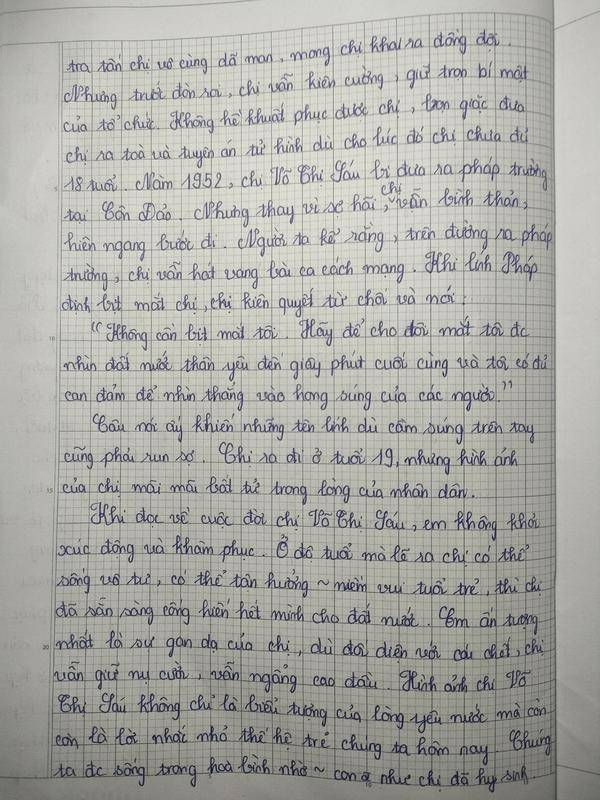 tra tấn chị vô cùng dã man, mong chị khai ra đồng đội.
Nhưng trước đòn roi, chị vẫn kiên cường, giữ trọn bí mật
của tổ chức. Không hề khuất phục được chị, bọn giặc đưa
chị ra toà và tuyên án tử hình dù cho lúc đó chị chưa đủ
18 tuổi. Năm 1952, chị Võ Thị Sáu bị đưa ra pháp trường
tại Côn Đảo. Nhưng thay vì sợ hãi, chị vẫn bình thản,
hiên ngang bước đi. Người ta kể rằng, trên đường ra pháp
trường, chị vẫn hát vang bài ca cách mạng. Khi lính Pháp
định bịt mắt chị, chị kiên quyết từ chối và nói:
"Không cần bịt mắt tôi. Hãy để cho đôi mắt tôi đc
nhìn đất nước thân yêu đến giây phút cuối cùng và tôi có đủ
can đảm để nhìn thẳng vào họng súng của các người."
Câu nói ấy khiến những tên lính dù cầm súng trên tay
cũng phải run sợ. Chị ra đi ở tuổi 19, nhưng hình ảnh
của chị mãi mãi bất tử trong lòng của nhân dân.
Khi đọc về cuộc đời chị Võ Thị Sáu, em không khỏi
xúc động và khâm phục. Ở độ tuổi mà lẽ ra chị có thể
sống vô tư, có thể tận hưởng ~ niềm vui tuổi trẻ, thì chị
đã sẵn sàng cống hiến hết mình cho đất nước. Em ấn tượng
nhất là sự gan dạ của chị, dù đối diện với cái chết, chị
vẫn giữ nụ cười, vẫn ngẩng cao đầu. Hình ảnh chị Võ
Thị Sáu không chỉ là biểu tượng của lòng yêu nước mà còn
còn là lời nhắc nhở thế hệ trẻ chúng ta hôm nay. Chúng
ta đc sống trong hoà bình nhờ ~ con như chị đã hy sinh.
10
15
20